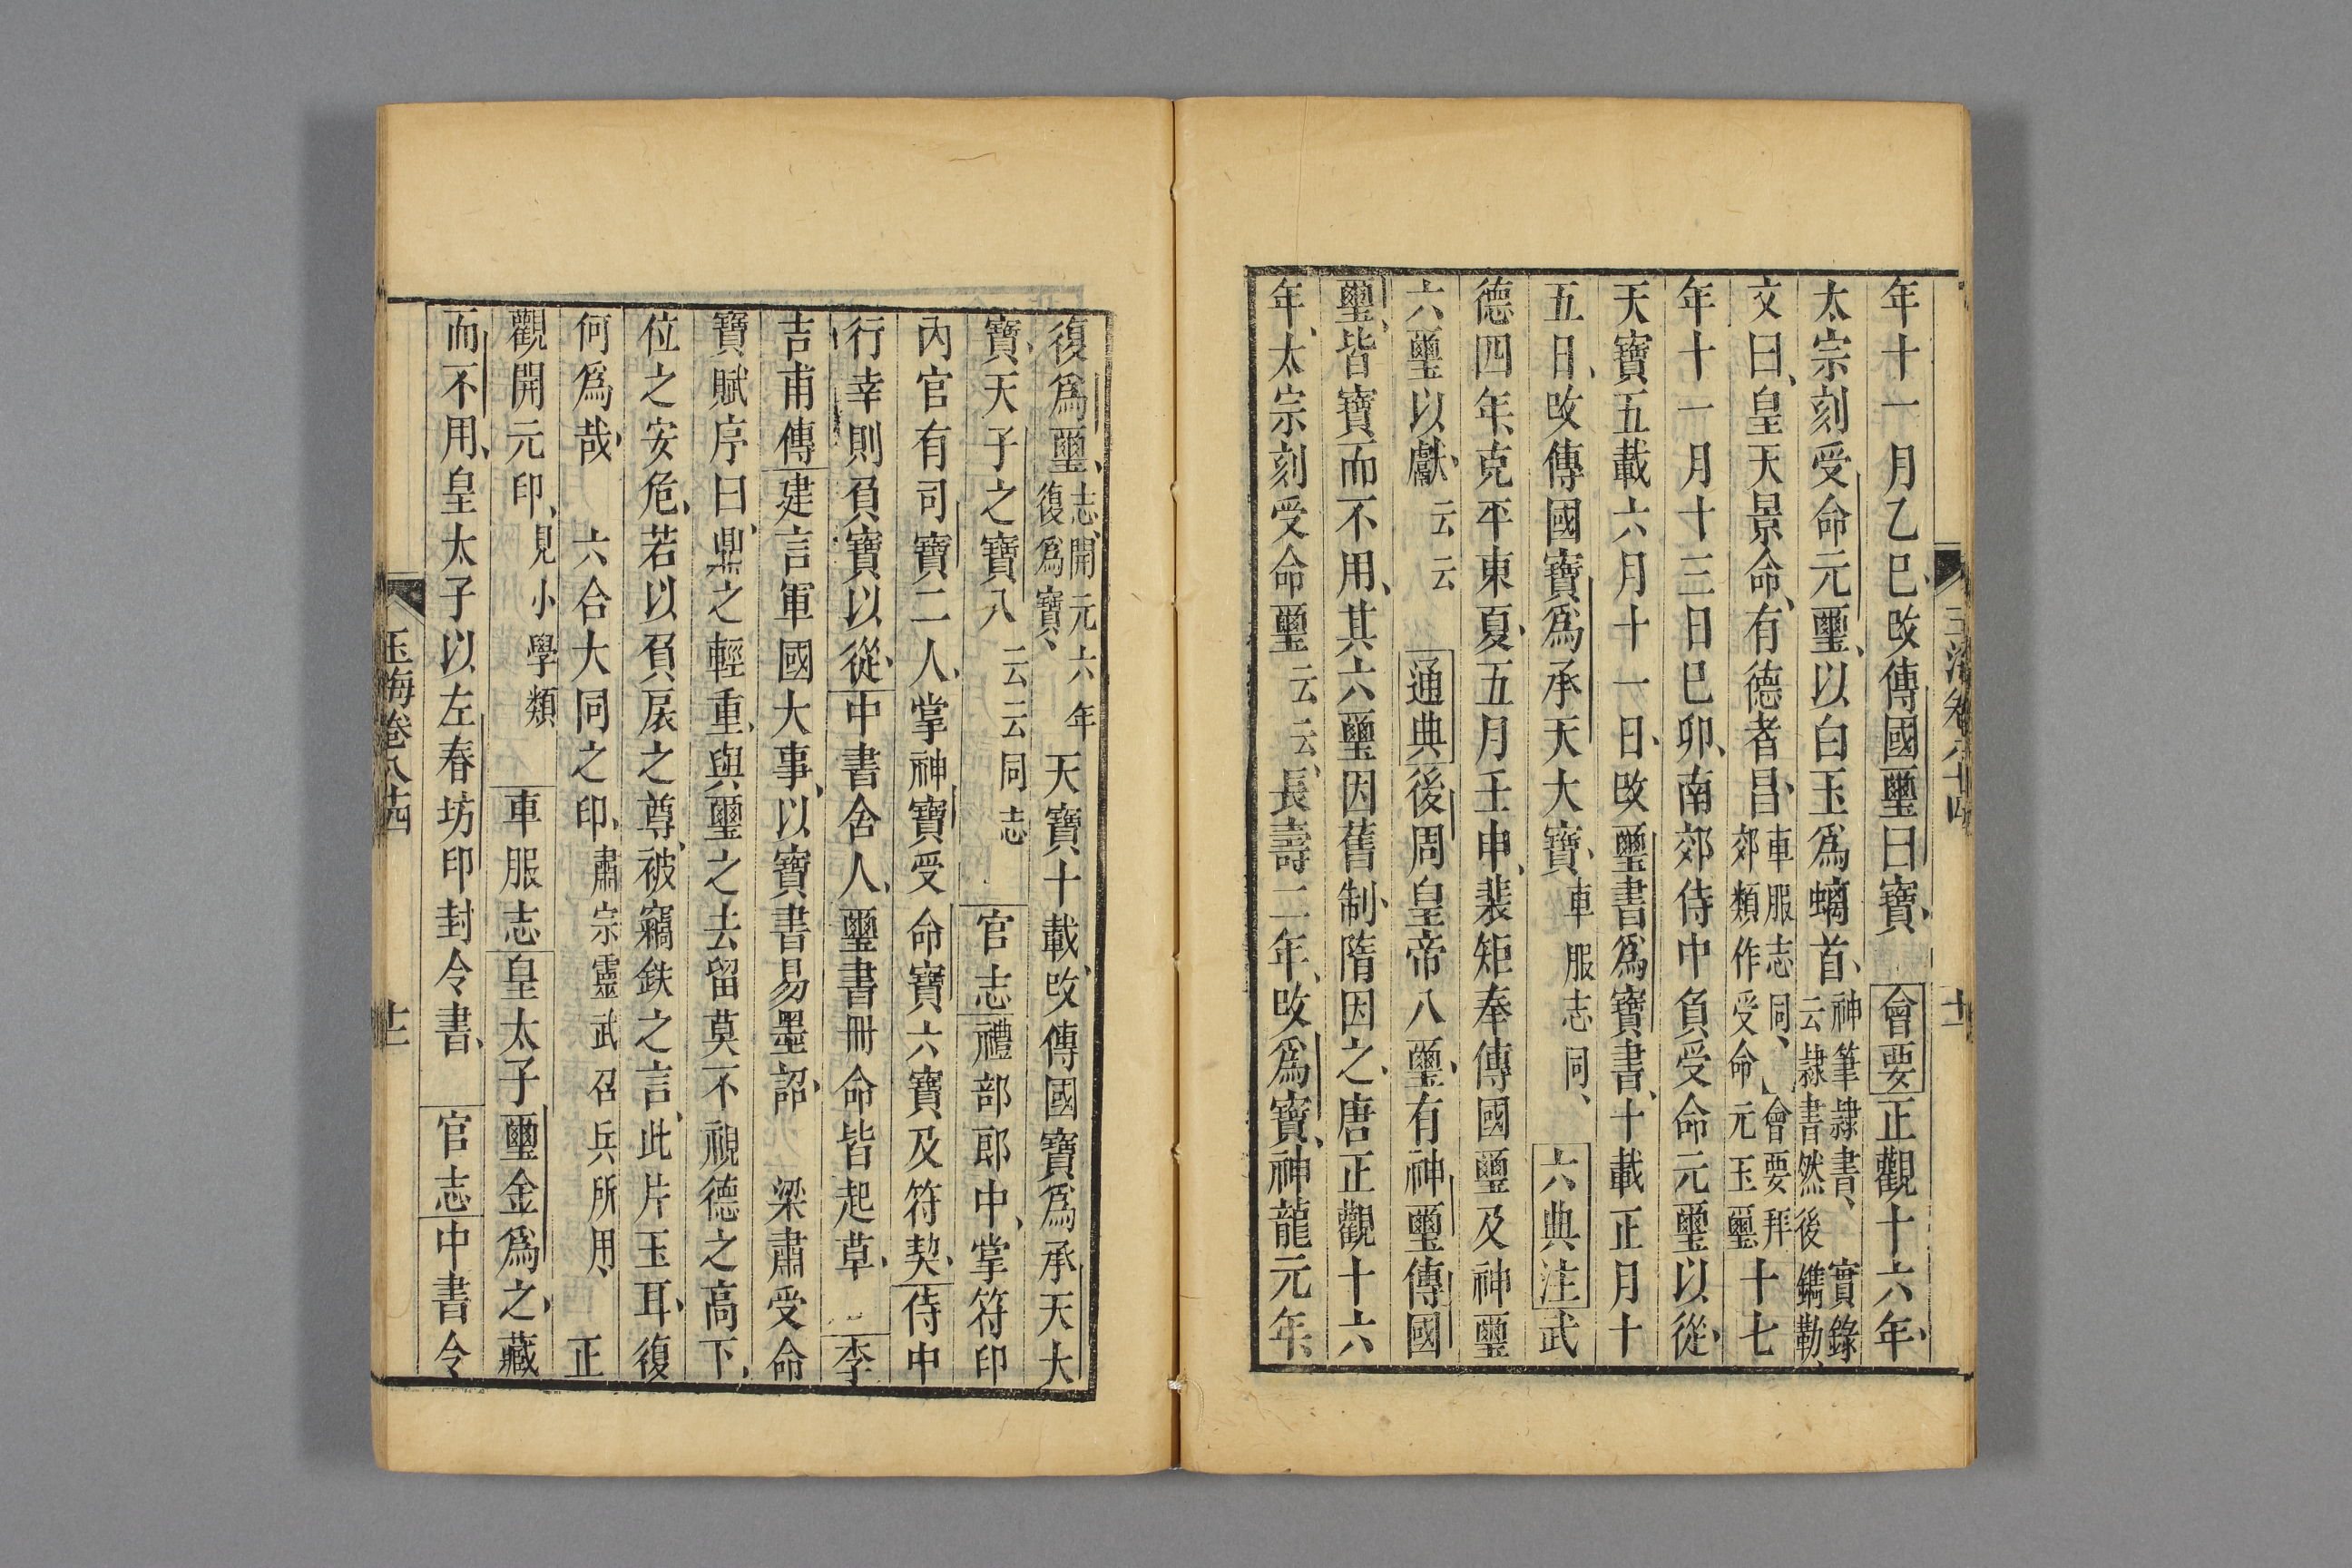 年十一月乙巳改傳國璽曰寶會要正觀十六年
太宗刻受命元璽以白玉爲螭首神筆隷書實錄云隷書然後鐫勒
文曰皇天景命有德者昌車服志同會要拜郊類作受命元玉璽十七
年十一月十三日巳卯南郊侍中負受命元璽以從
天寶五載六月十一日改璽書爲寶書十載正月十
五日改傳國寶爲承天大寶車服志同六典注武
德四年克平東夏五月壬申裴矩奉傳國璽及神璽
六璽以獻云云通典後周皇帝八璽有神璽傳國
璽皆寶而不用其六璽因舊制隋因之唐正觀十六
年太宗刻受命璽云云長壽二年改爲寶神龍元年
復爲璽志開元六年復爲寶天寶十載改傳國寶爲承天大
寶天子之寶八云云同志官志禮部郎中掌符印
內官有司寶二人掌神寶受命寶六寶及符契侍中
行幸則負寶以從中書舍人璽書冊命皆起草李
吉甫傳建言軍國大事以寶書易墨詔梁肅受命
寶賦序曰鼎之輕重與璽之去留莫不視德之高下
位之安危若以負扆之尊被竊鈇之言此片玉耳復
何爲哉六合大同之印肅宗靈武召兵所用正
觀開元印見小學類車服志皇太子璽金爲之藏
而不用皇太子以左春坊印封令書官志中書令
玉海卷八十四
十二